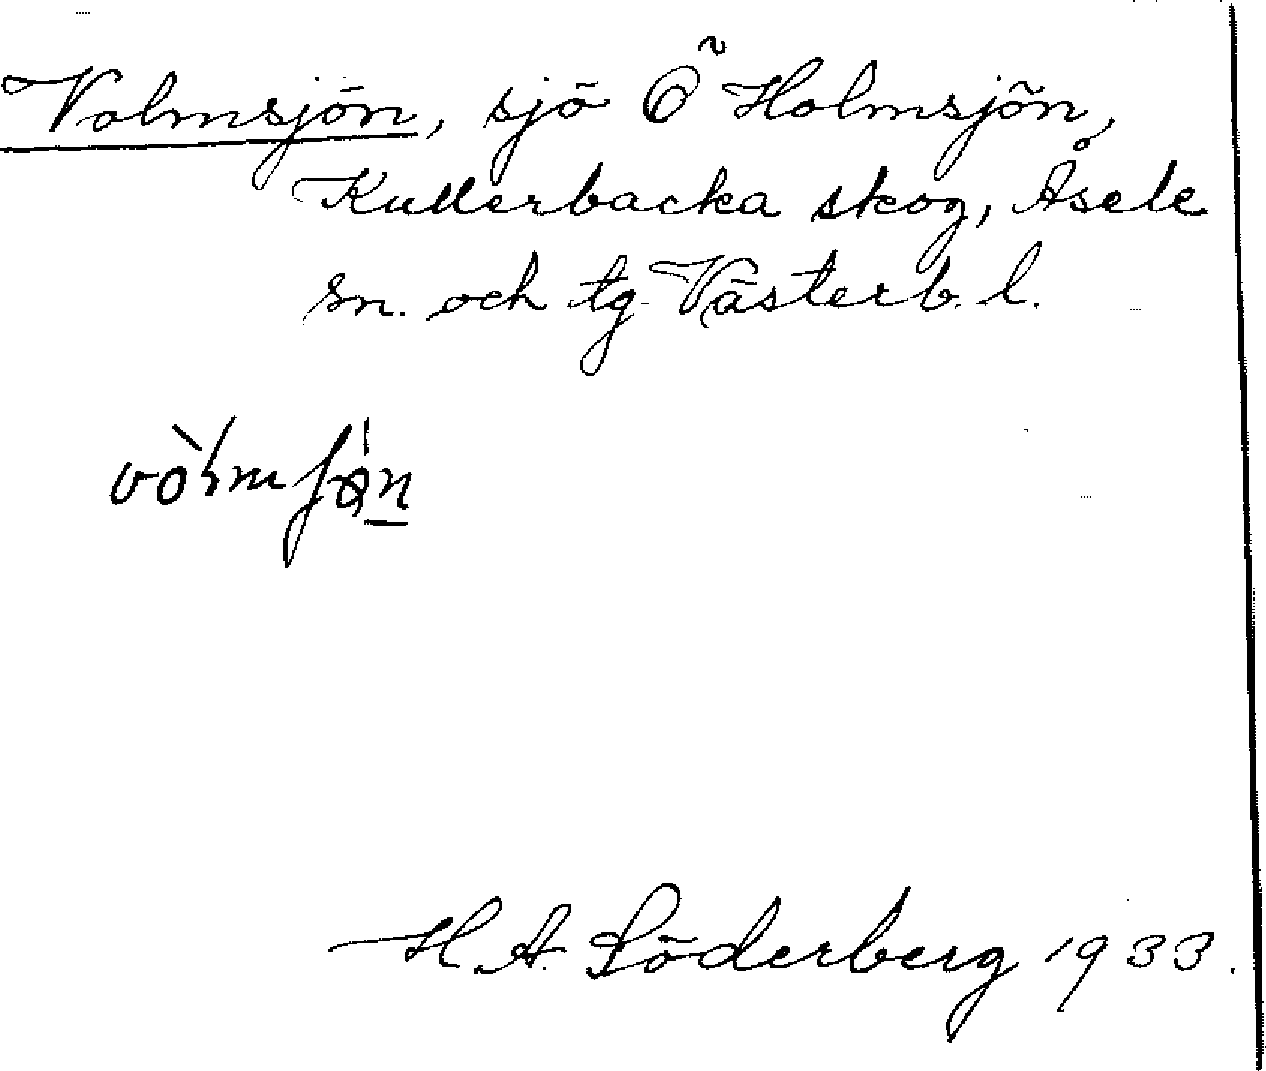 Volmsjön, sjö Ö Holmsjön,
Kullerbacka skog, Åsele
sn. och tg. Västerb. l.
H. A. Söderberg 1933.